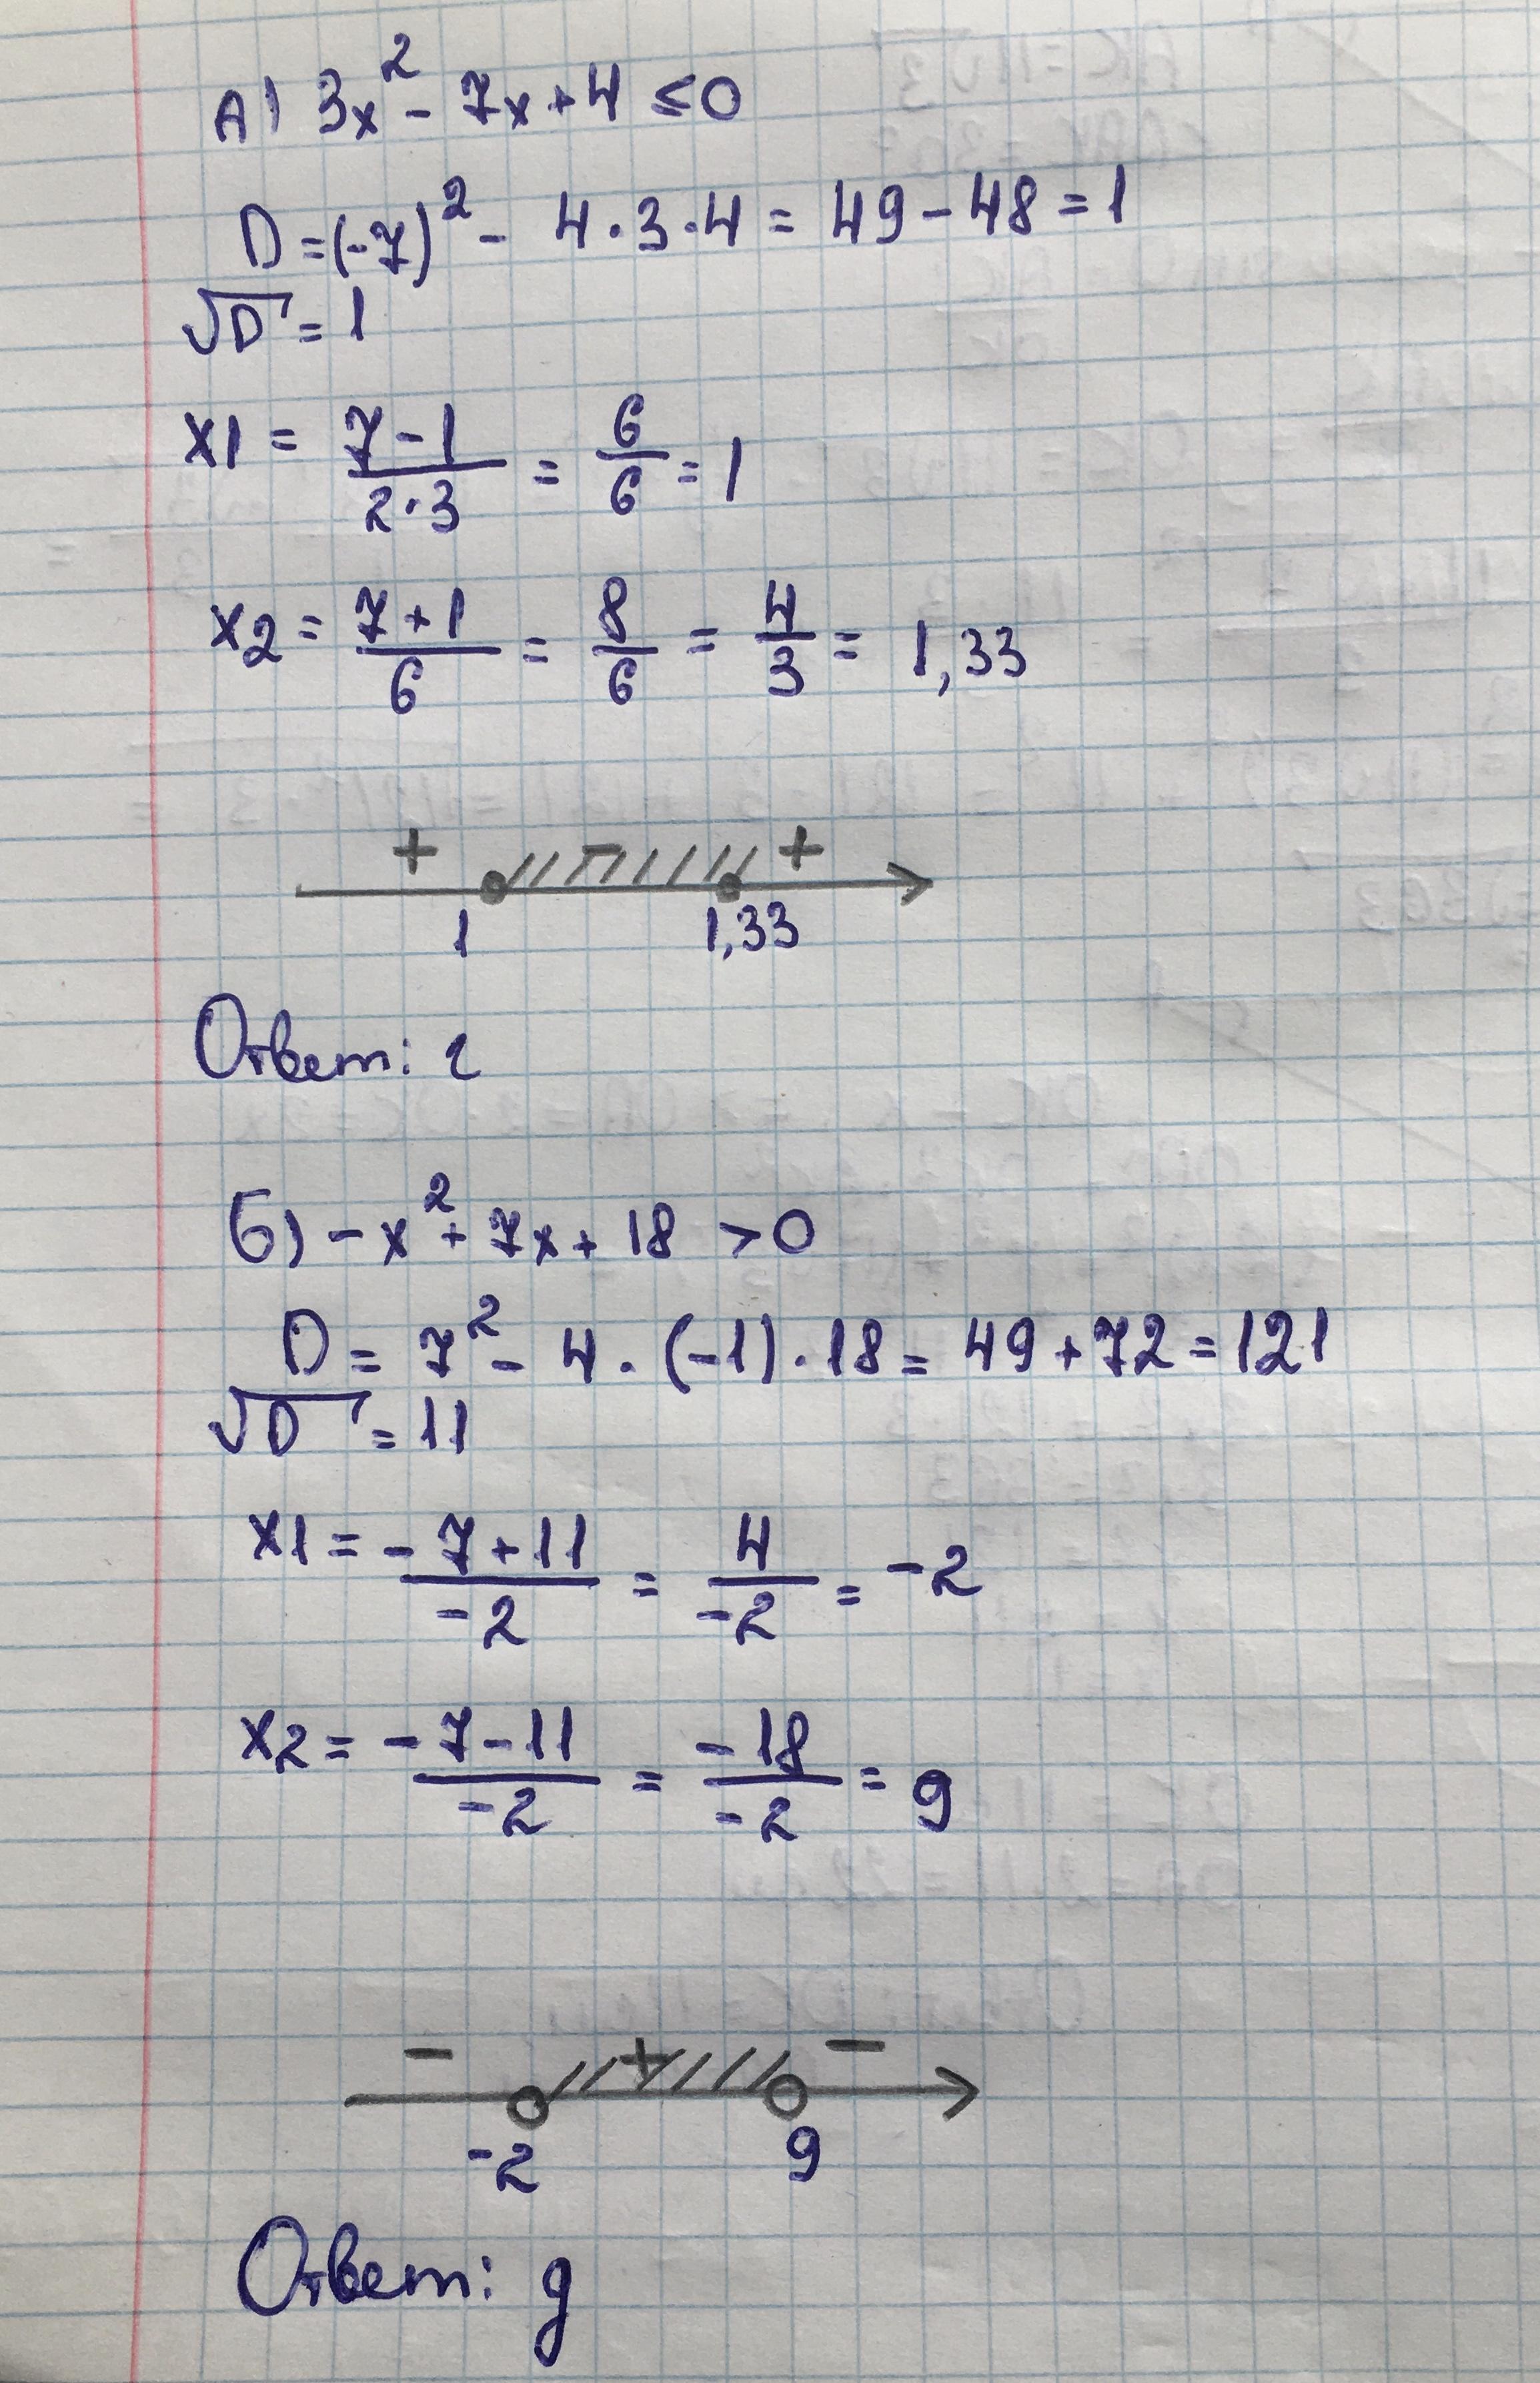 А) 3x² - 7x + 4 ≤ 0
D = (-7)² - 4·3·4 = 49 - 48 = 1
√D = 1
x1 = (7-1)/(2·3) = 6/6 = 1
x2 = (7+1)/6 = 8/6 = 4/3 = 1,33
+ - +
1 1,33
Ответ: г
Б) -x² + 7x + 18 > 0
D = 7² - 4·(-1)·18 = 49 + 72 = 121
√D = 11
x1 = (-7+11)/-2 = 4/-2 = -2
x2 = (-7-11)/-2 = -18/-2 = 9
- + -
-2 9
Ответ: д